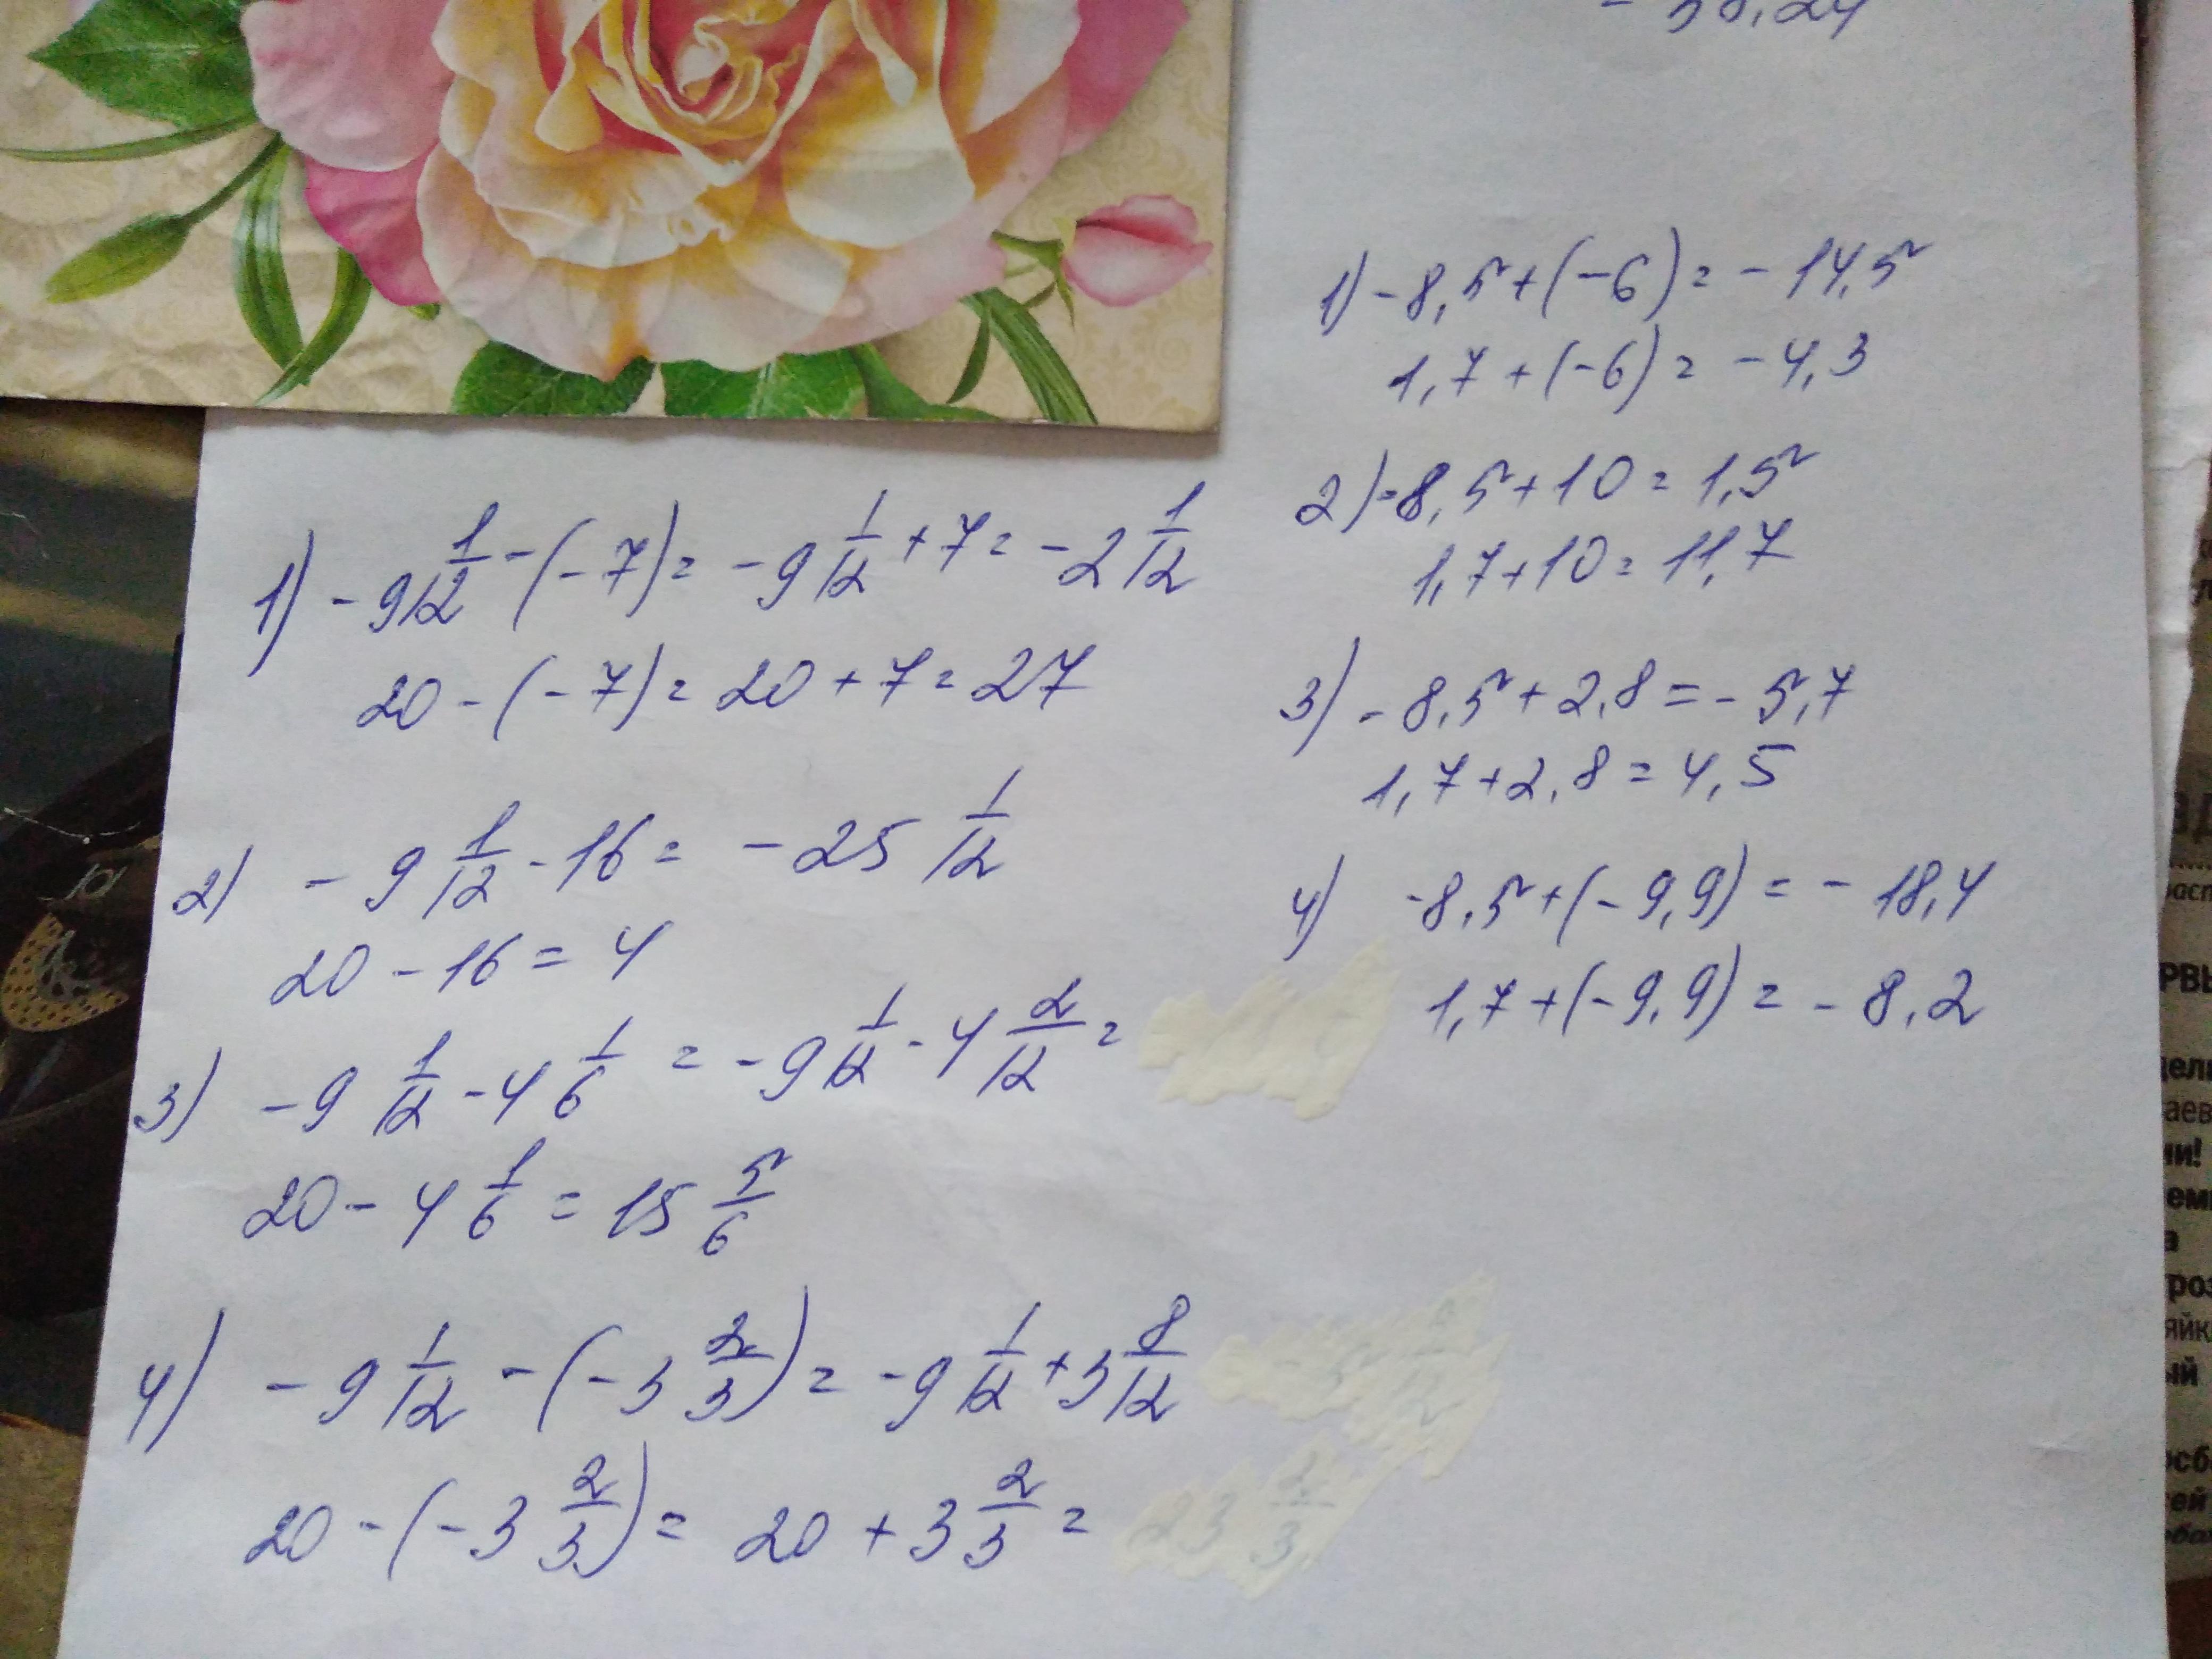 1) -8,5+(-6)=-14,5
1,7+(-6)=-4,3
2) -8,5+10=1,5
1,7+10=11,7
3) -8,5+2,8=-5,7
1,7+2,8=4,5
4) -8,5+(-9,9)=-18,4
1,7+(-9,9)=-8,2
1) -9 1/12-(-7)=-9 1/12+7=-2 1/12
20-(-7)=20+7=27
2) -9 1/12-16=-25 1/12
20-16=4
3) -9 1/12-4 1/6=-9 1/12-4 2/12=
20-4 1/6=15 5/6
4) -9 1/12-(-3 2/3)=-9 1/12+3 8/12
20-(-3 2/3)=20+3 2/3=23 2/3